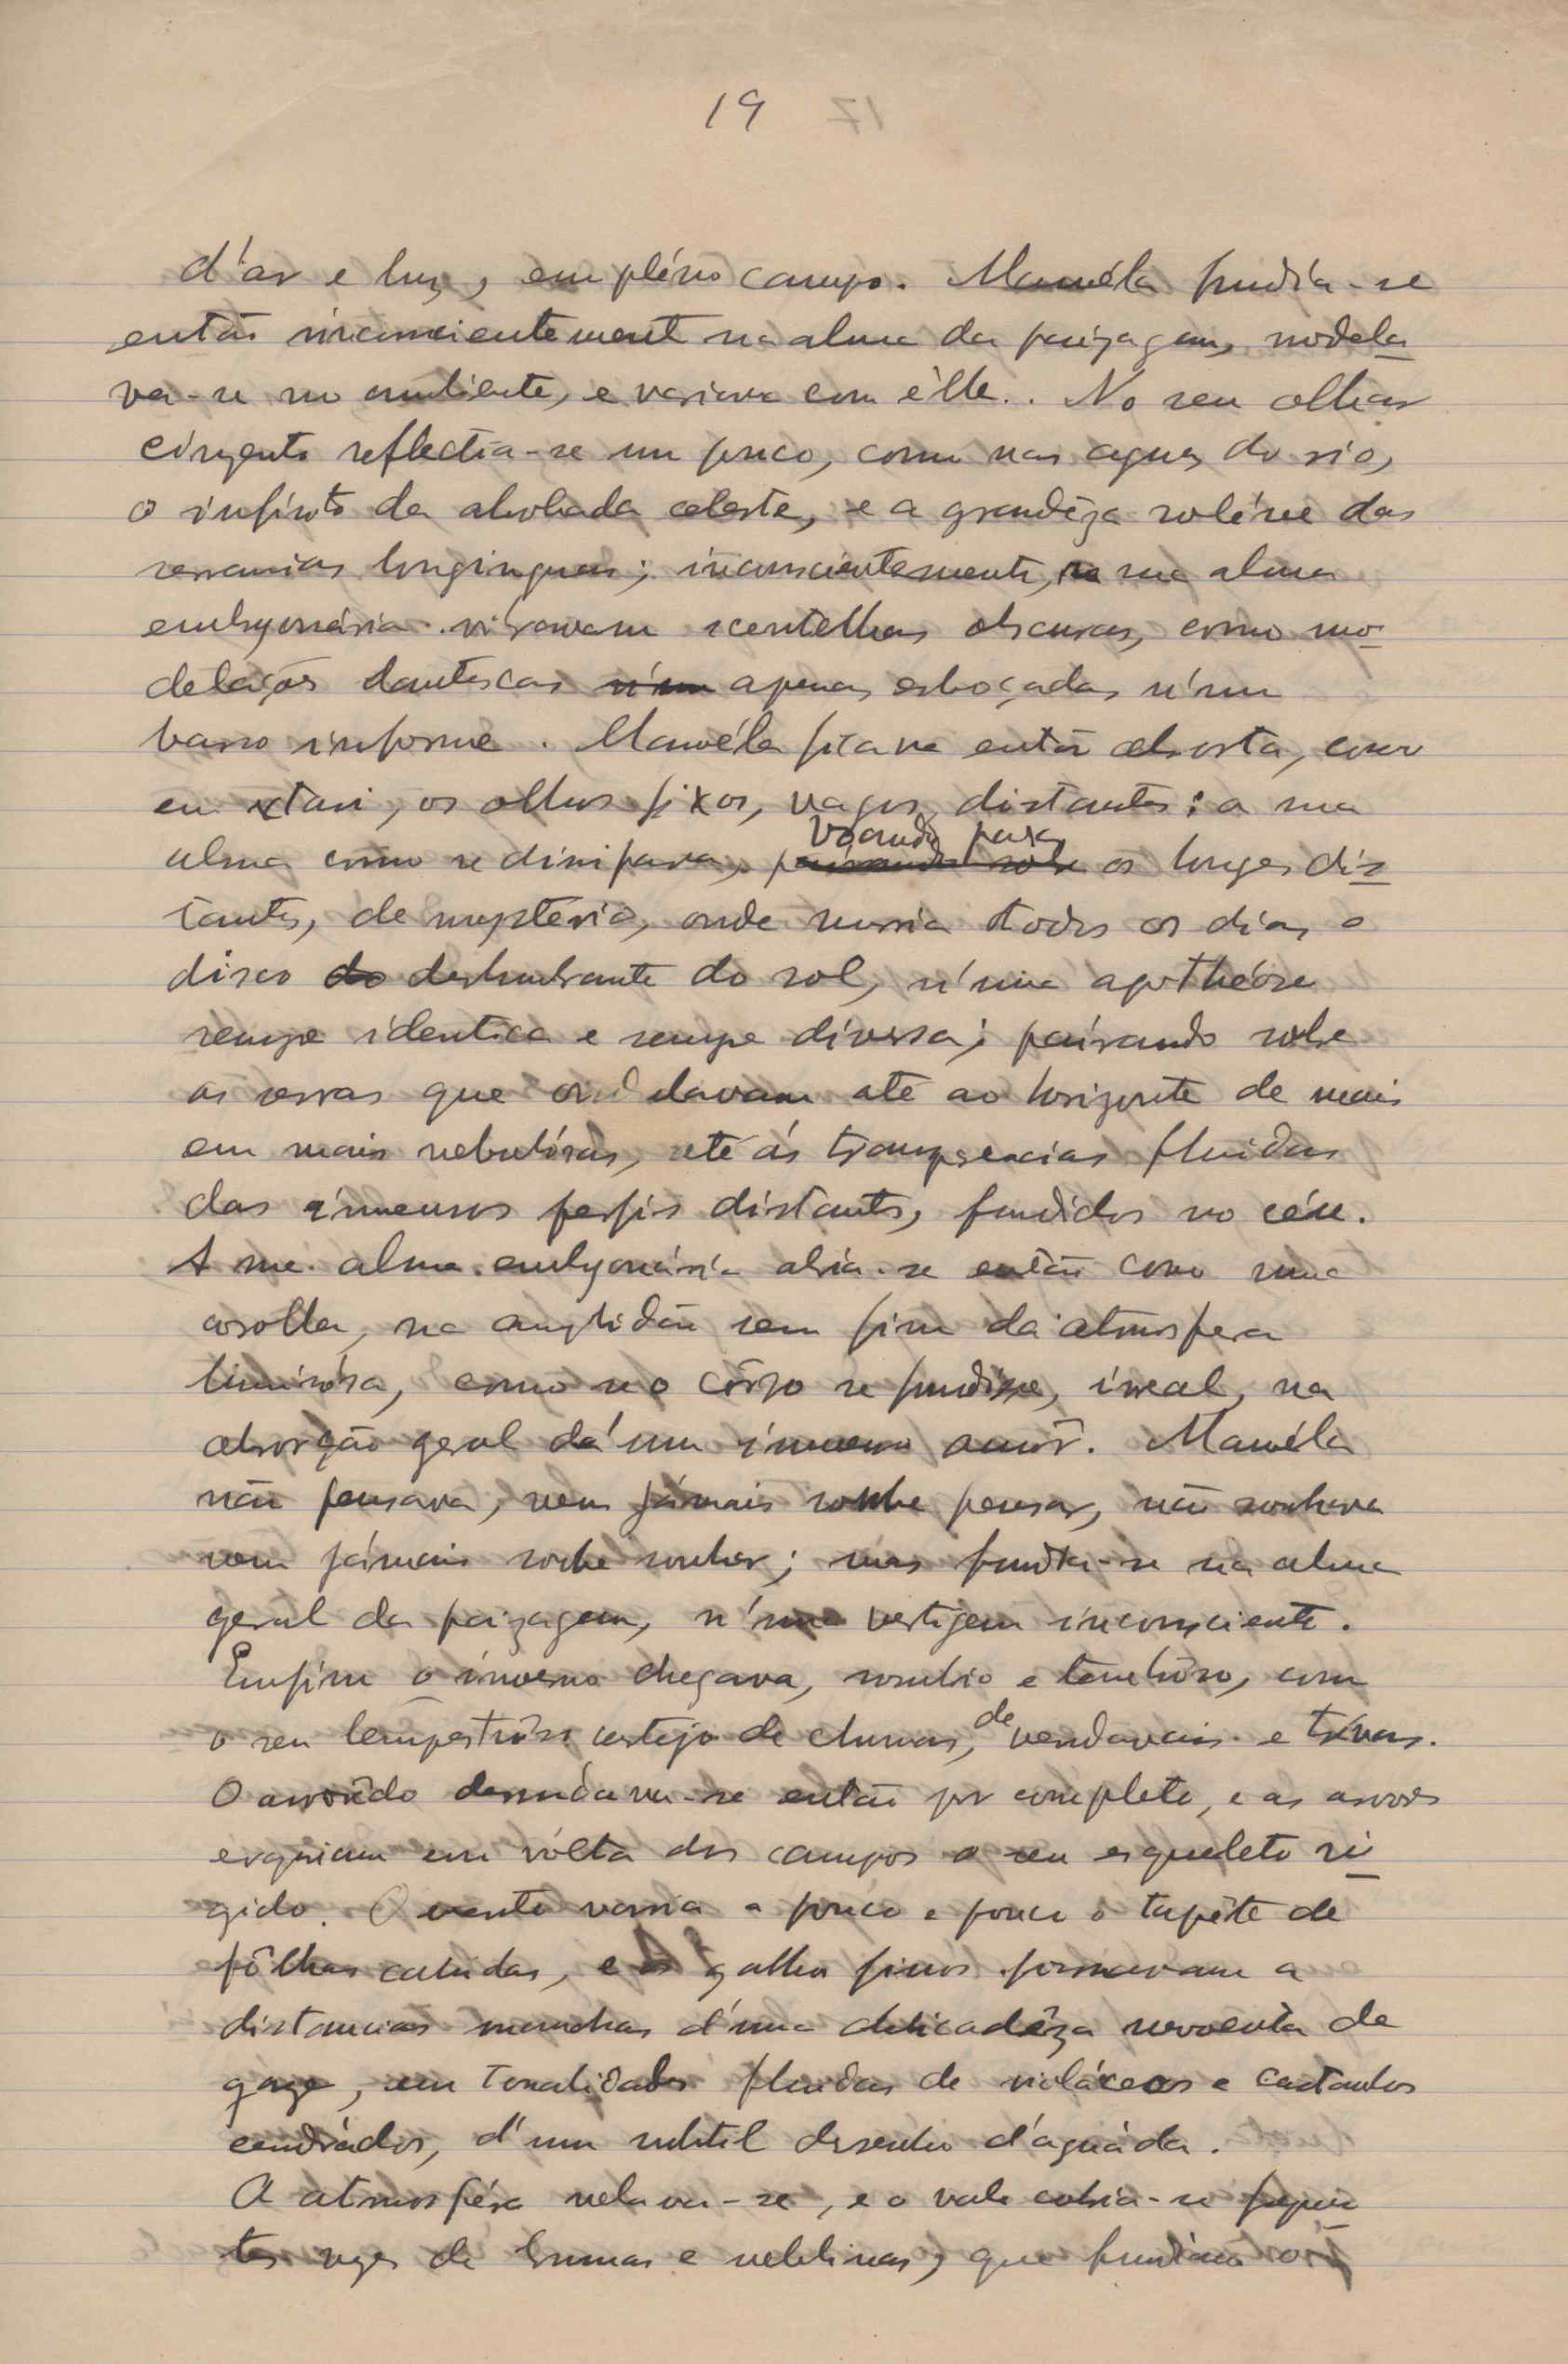 19
d'ar e luz, em plêno campo. Manuéla fundía-se
então inconscientemente na alma da paizagem, modela
va-se no ambiente, e variava com êlle.. No seu olhar
cinzento reflectia-se um pouco, como nas aguas do rio,
o infinito da abobada celeste, e a grandêza soléne das
serranias longinquas; inconscientemente, na sua alma
embryonária vibravam scentelhas obscuras, como mo
delações dantescas n'um apenas esboçadas n'um
barro informe. Manuéla ficava então absorta, como
em extasi, os olhos fixos, vagos, distantes: a sua
alma como se dissipava, voando para pairando sobre os longes dis
tantes, de mysterio, onde morria todos os dias o
disco do deslumbrante do sol, n'uma apothéose
sempre identica e sempre diversa; pairando sobre
as serras que ondulavam até ao horizonte de mais
em mais nebulósas, até ás transparencias fluidas
dos immensos perfis distantes, fundidos no céu.
A sua alma embryonária abria-se então como uma
corolla, na amplidão sem fim da atmosfera
luminósa, como se o côrpo se fundisse, irreal, na
absorção geral dá'um immenso amôr. Manuéla
não pensava, nem jámais soube pensar, não sonhava
nem jámais soube sonhar; mas fundia-se na alma
geral da paizagem, n'uma vertigem inconsciente.
Emfim o inverno chegava, sombrio e tenebrôso, com
o seu tempestuôso cortejo de chuvas, de vendavais e trévas.
O arvorêdo desnudava-se então por completo, e as arvores
erguiam em vólta dos campos o seu esqueleto ri
gido. O vento varria a pouco e pouco o tapête de
fôlhas cahidas, e os galhos finos formavam a
distancias manchas d'uma delicadêza nevoenta de
gaze, em tonalidades fluidas de violáceos e castanhos
cendrádos, d'um subtil desenho d'aguáda.
A atmosféra velava-se, e o vale cobria-se frequen
tes vezes de brumas e neblinas, que fundiam o